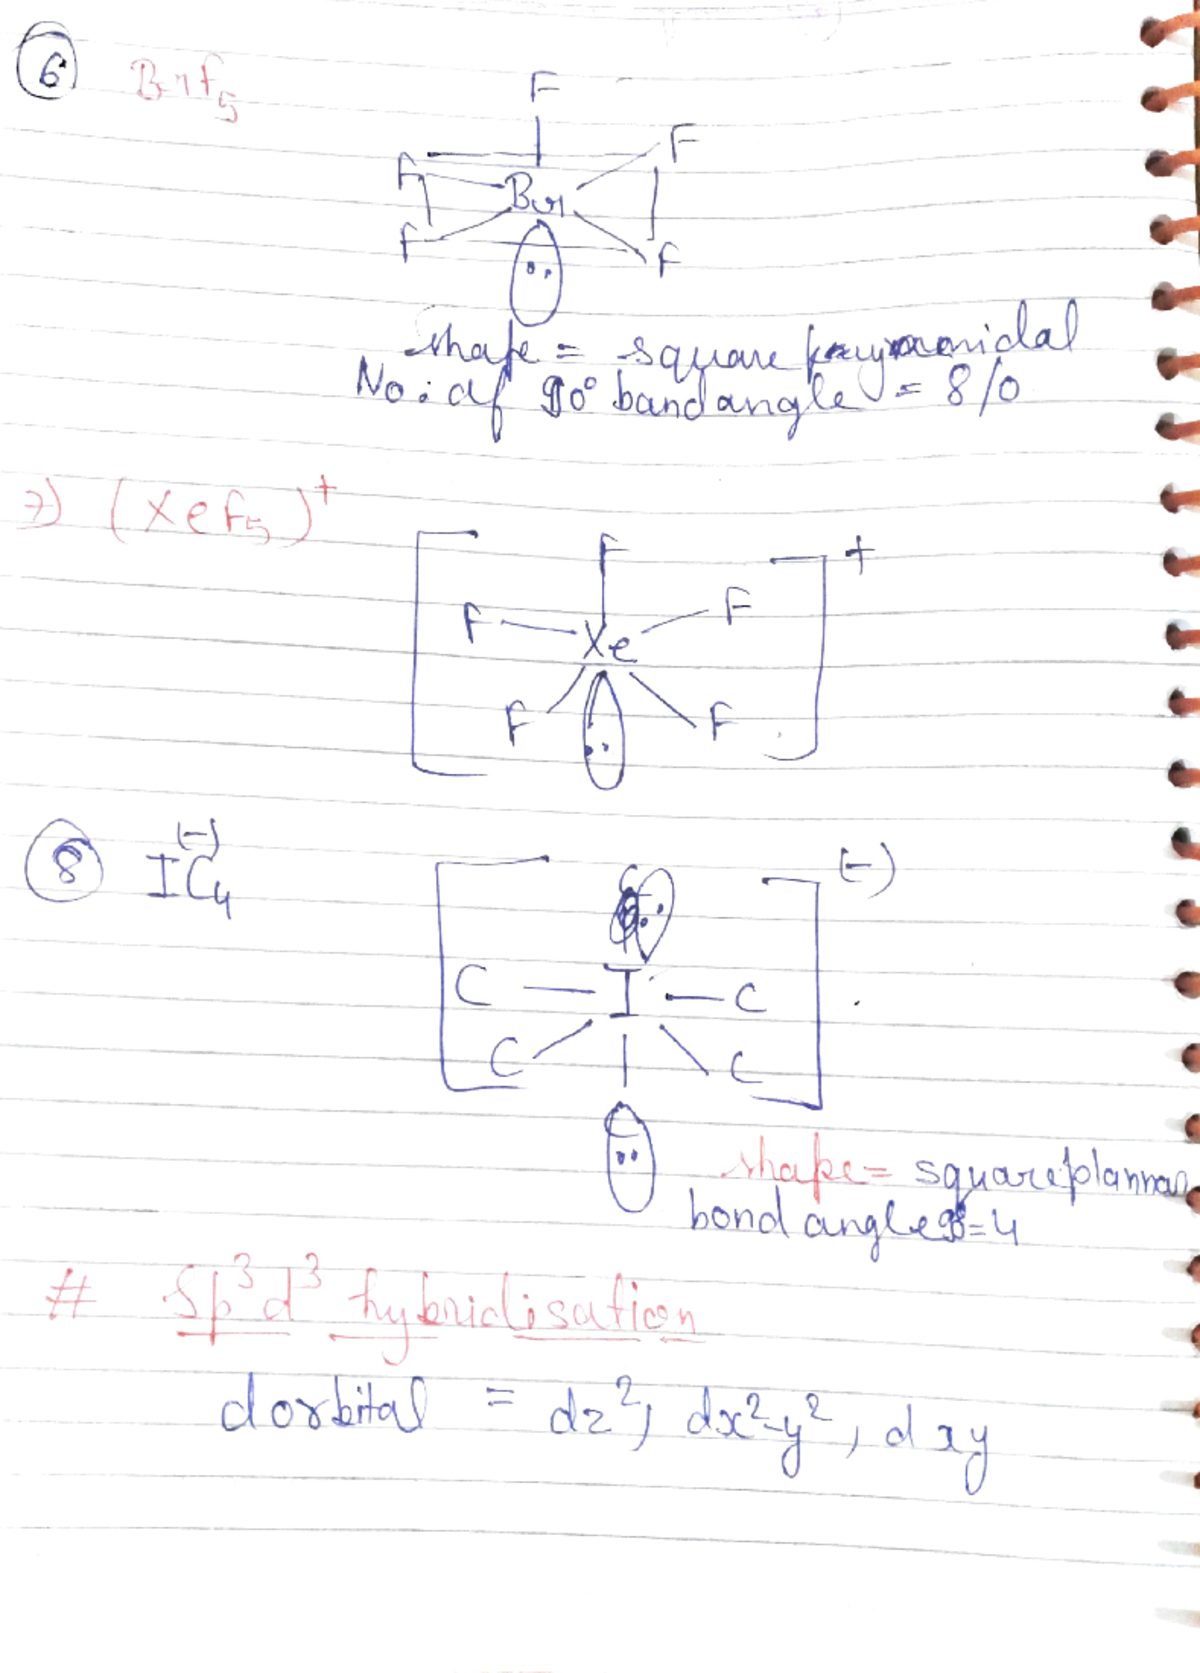 6 BrF5
F
F F
Br
F F
shape = square pyramidal
No: of 90° bond angle = 8/0
7) (XeF5)+
F +
F F
Xe
F F
8 IC4(-)
(-)
C I C
C C
shape = square plannar
bond angle = 4
# Sp3d3 hybridisation
d orbital = dz2, dx2-y2, dxy